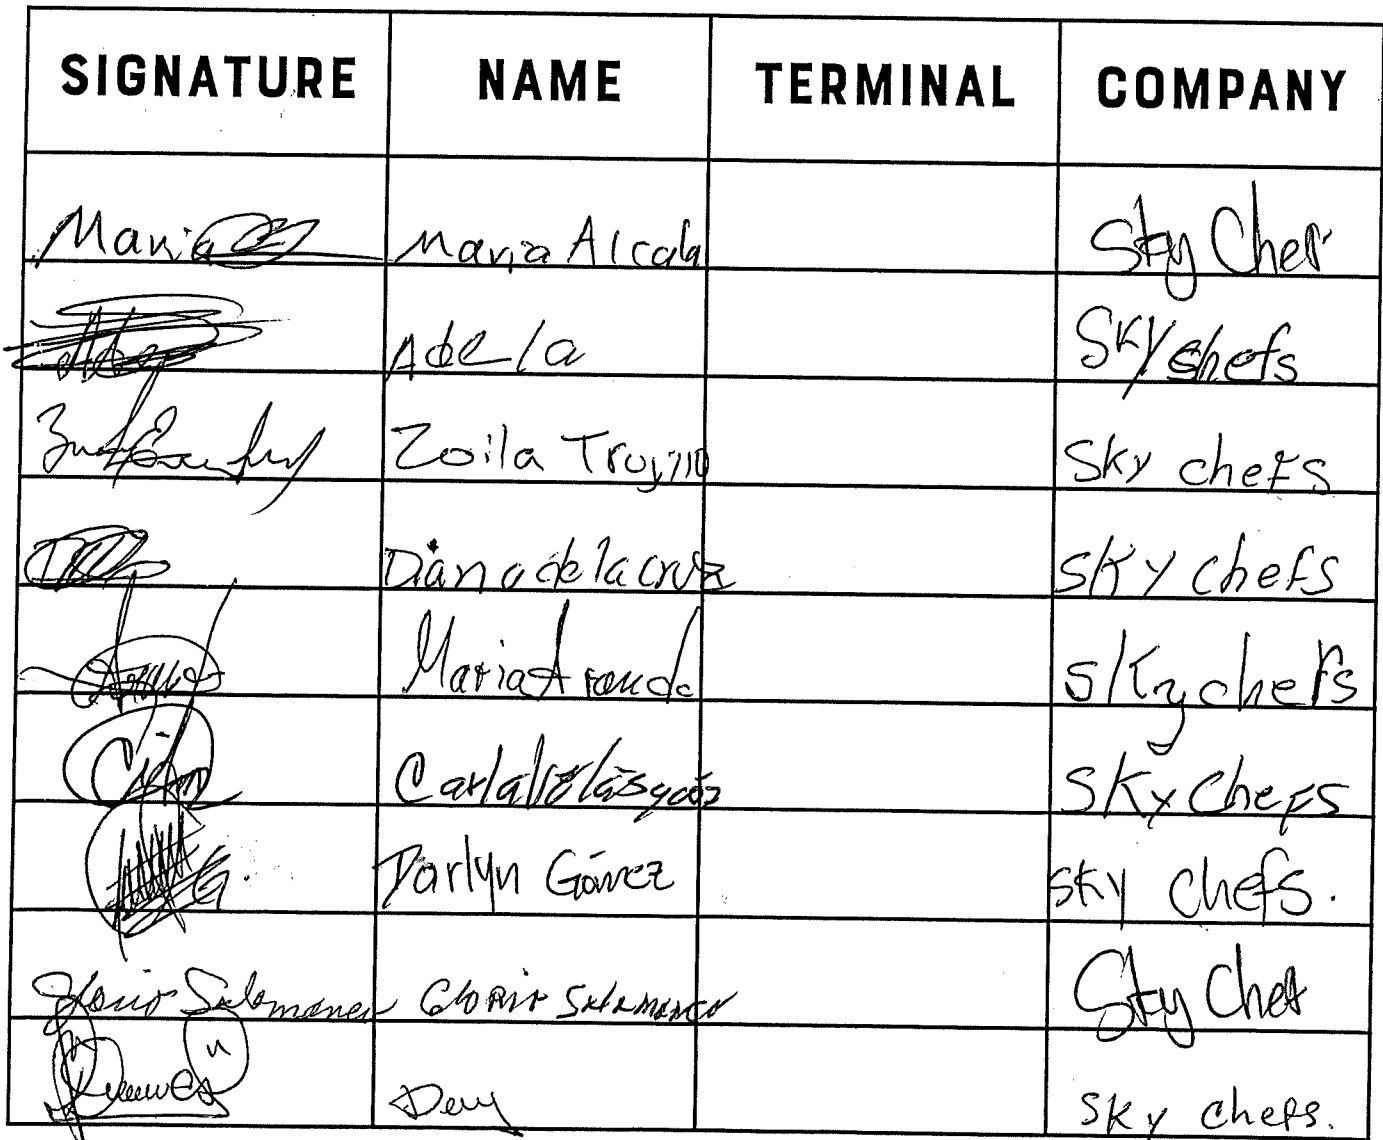 SIGNATURE NAME TERMINAL COMPANY
Maria Maria Alcala Sky Chef
Adela Sky shefs
Zoila Trujillo Sky chefs
Diana de la cruz Sky chefs
Maria Aranda Sky chefs
Carla Velásquez Sky Chefs
Darlyn Gámez Sky Chefs.
Gloria Salamanca Gloria Salamanca Sky Chef
Sky chefs.